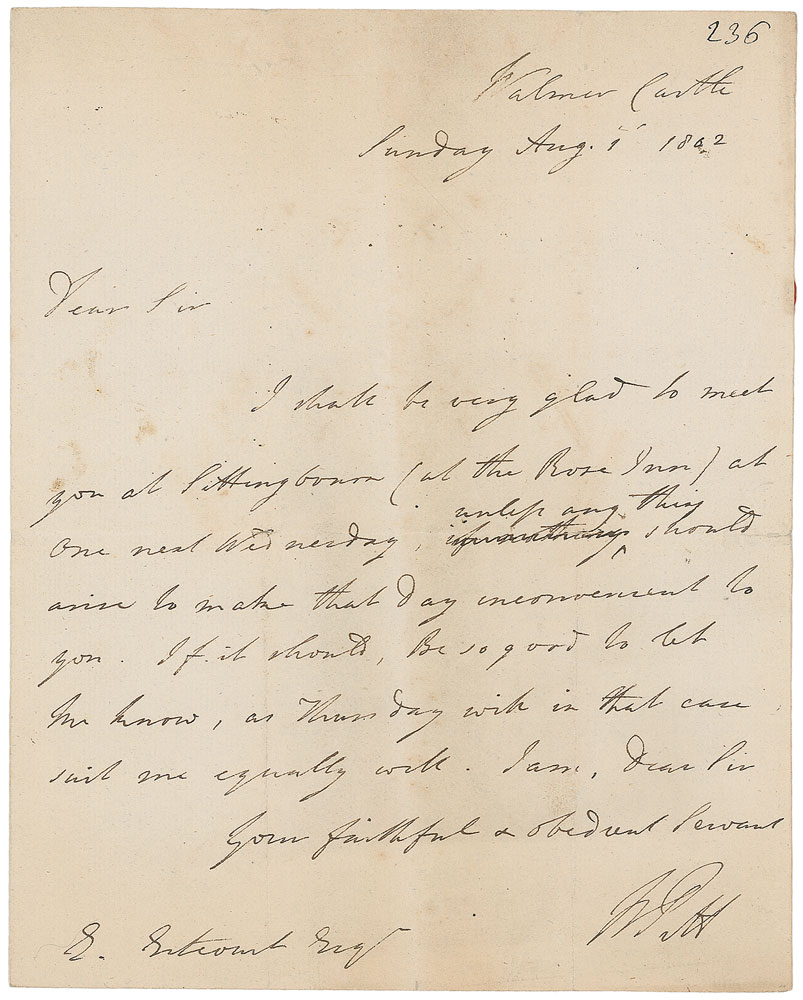 236
Walmer Castle
Sunday Aug. 1st 1802
Dear Sir
I shall be very glad to meet
you at Sittingbourn (at the Rose Inn) at
unless any thing
one next Wednesday, should
arise to make that day inconvenient to
you. If it should, Be so good to let
me know, as Thursday will in that case
suit me equally well. I am, Dear Sir
Your faithful & obedient Servant
W Pitt
E. Estcourt Esqr